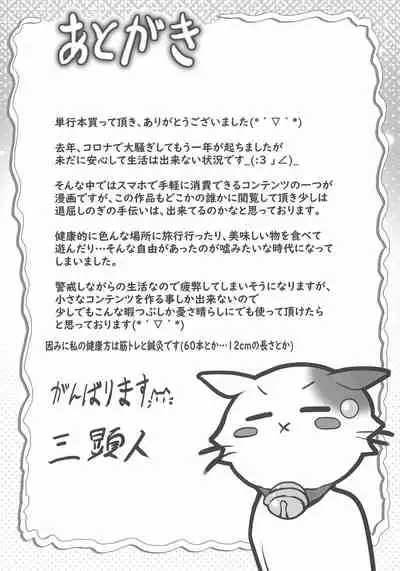 あとがき
単行本買って頂き、ありがとうございました(*´∇｀*)
去年、コロナで大騒ぎしてもう一年が起ちましたが
未だに安心して生活は出来ない状況です_(:3 」∠)_
そんな中ではスマホで手軽に消費できるコンテンツの一つが
漫画ですが、この作品もどこかの誰かに閲覧して頂き少しは
退屈しのぎの手伝いは、出来てるのかなと思っております。
健康的に色んな場所に旅行行ったり、美味しい物を食べて
遊んだり…そんな自由があったのが嘘みたいな時代になって
しまいました。
警戒しながらの生活なので疲弊してしまいそうになりますが、
小さなコンテンツを作る事しか出来ないので
少しでもこんな暇つぶしか憂さ晴らしにでも使って頂けたら
と思っております(*´∇｀*)
因みに私の健康方は筋トレと鍼灸です(60本とか…12cmの長さとか)
がんばります
三顕人